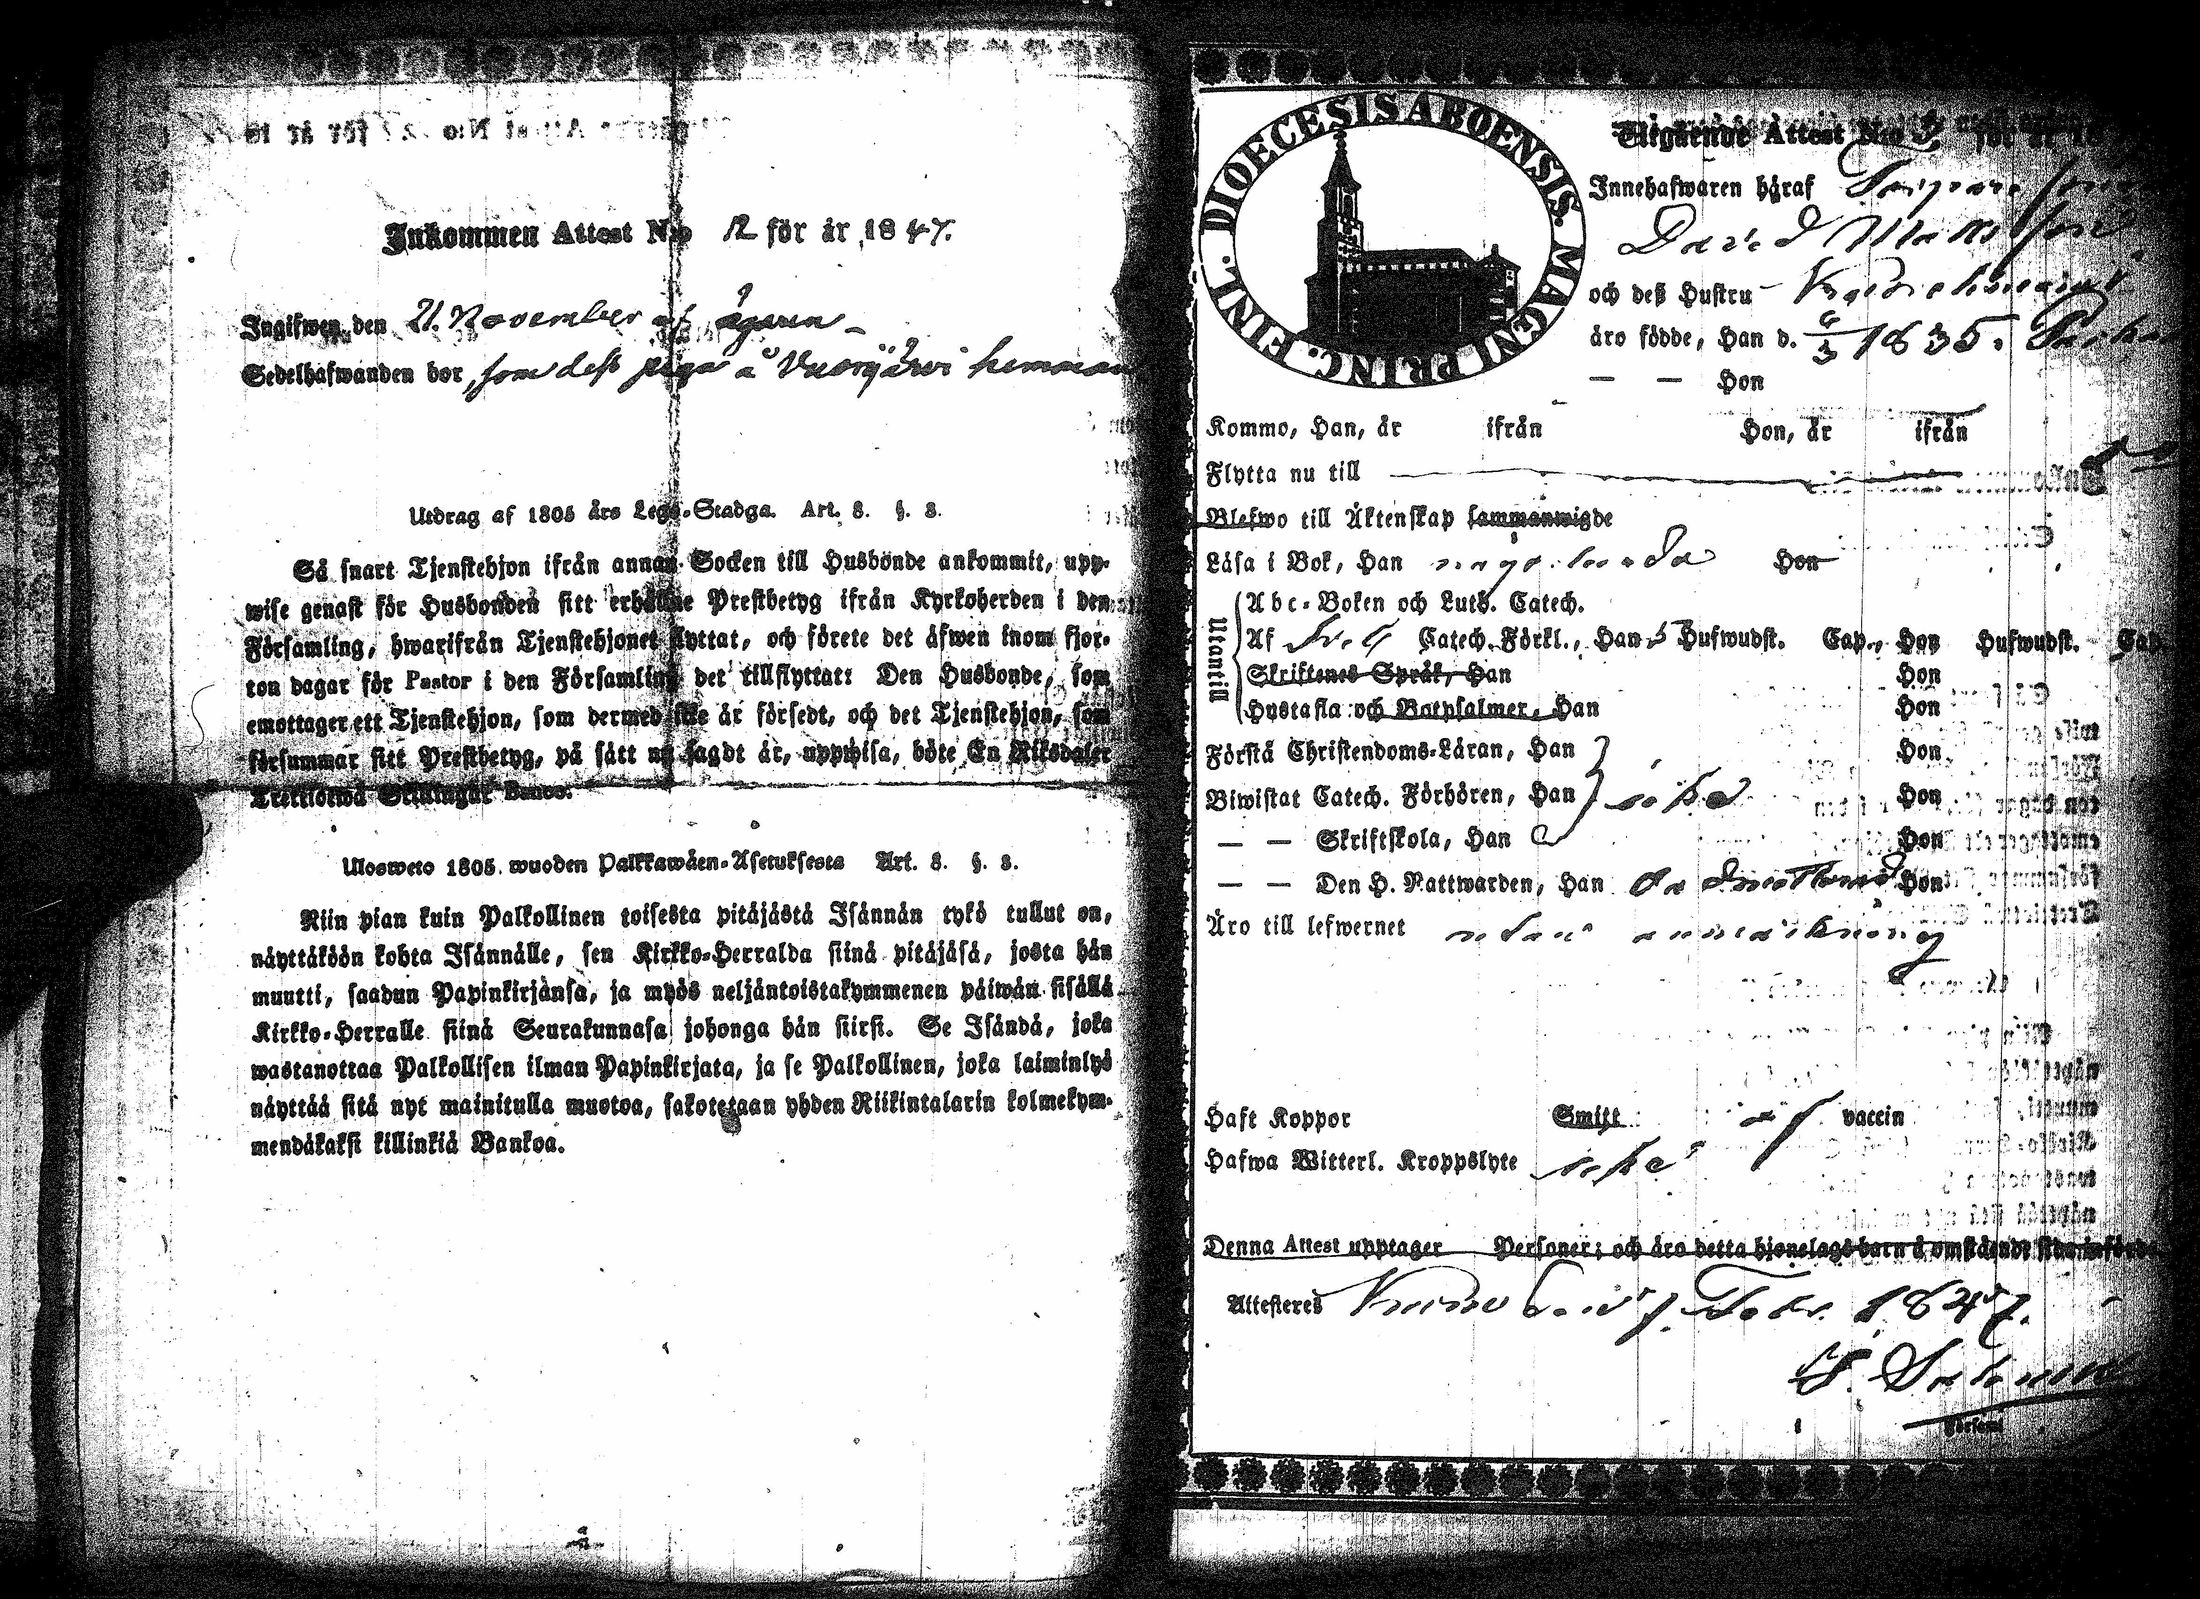 Inkommen Attest N:o 12 för år 1847.
Ingifwen den 21. November af ägaren
Sedelhafwanden bor, som dess piga å Vuorijärvi hemman
Utdrag af 1805 års Lego-Stadga. Art. 8. §. 8.
Så snart Tjenstehjon ifrån annan Socken till Husbonde ankommit, upp-
wise genast för Husbonden sitt erhållne Prestbetyg ifrån Kyrkoherden i den
Församling, hwarifrån Tjenstehjonet flyttat, och förete det äfwen inom fjor-
ton dagar för Pastor i den Församling det tillflyttat: Den Husbonde, som
emottager ett Tjenstehjon, som dermed icke är försedt, och det Tjenstehjon, som
försummar sitt Prestbetyg, på sätt nu sagdt är, uppwisa, böte En Riksdaler
Trettiotwå Skillingar Banco.
Ulosweto 1805. wuoden Palkkawäen-Asetuksesta Art. 8. §. 8.
Niin pian kuin Palkollinen toisesta pitäjästä Isännän tykö tullut on,
näyttäköön kohta Isännälle, sen Kirkko-Herralda siinä pitäjäsä, josta hän
muutti, saadun Papinkirjänsa, ja myös neljäntoistakymmenen päiwän sisällä
Kirkko-Herralle siinä Seurakunnasa johonga hän siirsi. Se Isändä, joka
wastanottaa Palkollisen ilman Papinkirjata, ja se Palkollinen, joka laiminlyö
näyttää sitä nyt mainitulla muotoa, sakotetaan yhden Riikintalarin kolmekym-
mendäkaksi killinkiä Bankoa.
DIOECESIS ABOENSIS. MAGNI PRINC. FINL.
Utgående Attest N:o 3 för år 18
Innehafwaren häraf
David Matsson
och deß Hustru
äro födde, Han d. 6/3 1835.
— — Hon
Kommo, Han, år ifrån Hon, år ifrån
Flytta nu till
Blefwo till Äktenskap sammanwigde
Läsa i Bok, Han någorlunda Hon
Utantill
Abc-Boken och Luth. Catech.
Af Catech. Förkl., Han 5 Hufwudst. Cap., Hon Hufwudst. Cap
Skriftenes Språk, Han Hon
Hustafla och Botpsalmer, Han Hon
Förstå Christendoms-Läran, Han Hon
Biwistat Catech. Förhören, Han Hon
— — Skriftskola, Han Hon
— — Den H. Nattwarden, Han Hon
Äro till lefwernet utan anmärkning
Haft Koppor Smitt af vaccin
Hafwa Witterl. Kroppslyte
Denna Attest upptager Personer; och äro detta hjonelags barn å omstående sida införde
Attesteres Febr. 1847.